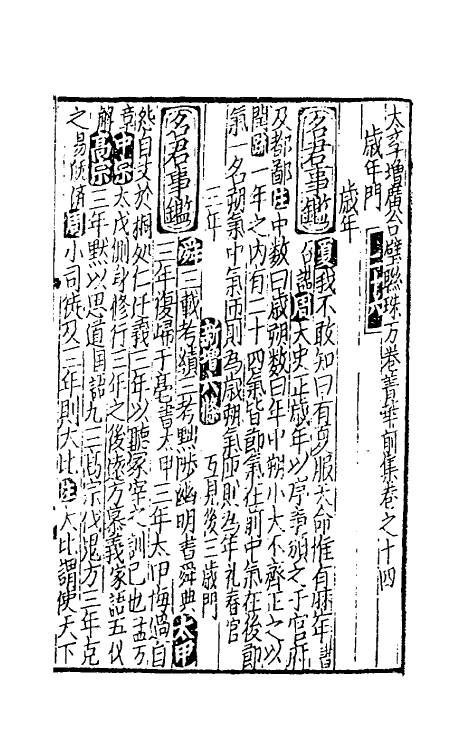 太學增廣合璧聯珠萬卷菁華前集卷之十四
歲年門 二十六
歲年
名君事鑑 夏我不敢知曰有夏服天命惟有厤年
召誥周大史正歲年以序事頒之于官府
及都鄙注中數曰歲朔數曰年中朔小大不齊正之以
閏 一年之内有二十四氣皆節氣在前中氣在後節
氣一名朔氣中氣匝則為歲朔氣匝則為年礼春官
三年 新增六條 互見後三歲門
名君事鑑 舜三載考績三考黜陟幽明書舜典太甲
三年復歸于亳書太甲三年太甲悔過自
怨自艾於桐処仁迁義三年以聽冢宰之訓己也孟万
章中宗太戊側身修行三年之後遠方慕義家語五仪
解高宗三年默以思道国語九三高宗伐鬼方三年克
之易既济周小司徒及三年則大比注大比謂使天下